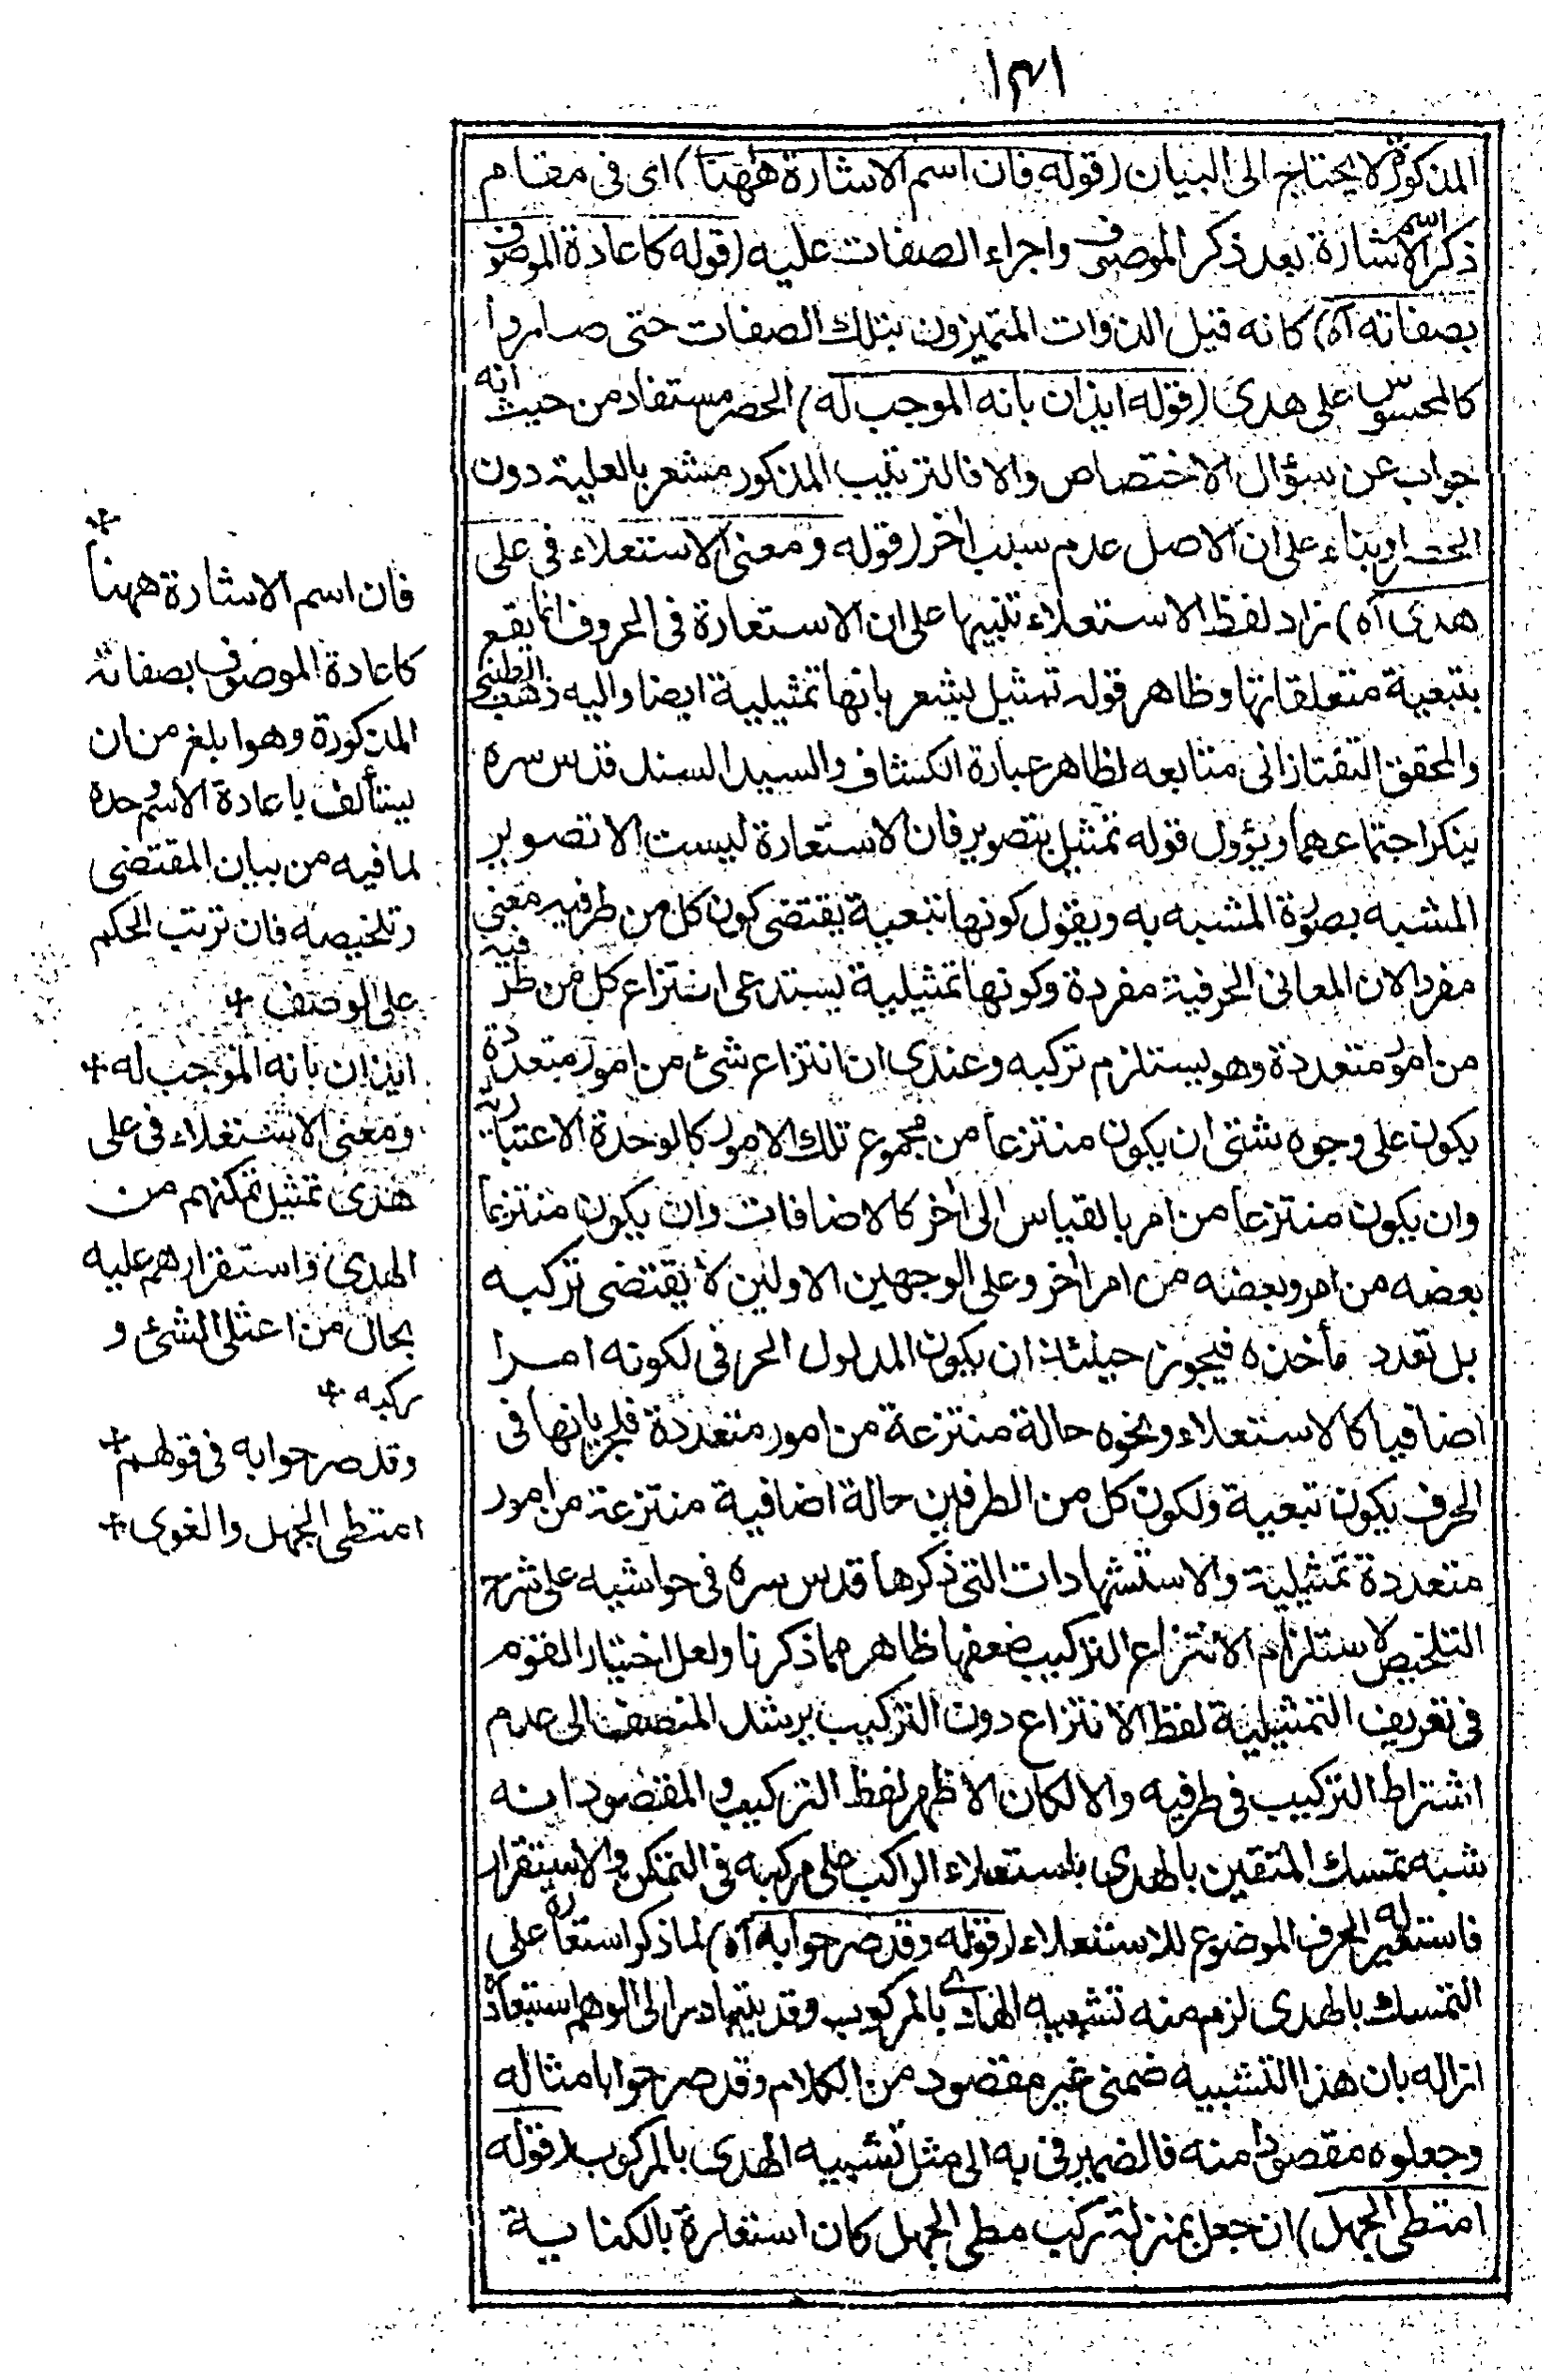 ۱۴۱
المذكورة لا يحتاج الى البيان (قوله فان اسم الاشارة ههنا) اى فى مقام
ذكر اسم الاشارة بعد ذكر الموصوف واجراء الصفات عليه (قوله كاعادة الموصوف
بصفاته آه) كانه قيل الذوات المتميزون بتلك الصفات حتى صاروا
كالمحسوس على هدى (قوله ايذان بانه الموجب له) الحصر مستفاد من حيث انه
جواب عن سؤال الاختصاص والا فالترتيب المذكور مشعر بالعلية دون
الحصر او بناء على ان الاصل عدم سبب اخر (قوله ومعنى الاستعلاء فى على
هدى آه) زاد لفظ الاستعلاء تنبيها على ان الاستعارة فى الحروف انما يقع
بتبعية متعلقاتها وظاهر قوله تمثيل يشعر بانها تمثيلية ايضا واليه ذهب الطيبى
والمحقق التفتازانى متابعه لظاهر عبارة الكشاف والسيد السند قدس سره
ينكر اجتماعهما ويؤول قوله تمثيل بتصوير فان الاستعارة ليست الا تصوير
المشبه بصورة المشبه به ويقول كونها تبعية يقتضى كون كل من طرفيه معنى
مفردا لان المعانى الحرفية مفردة وكونها تمثيلية يستدعى انتزاع كل من طرفيه
من امور متعددة وهو يستلزم تركبه وعندى ان انتزاع شئ من امور متعددة
يكون على وجوه شتى ان يكون منتزعا من مجموع تلك الامور كالوحدة الاعتبارية
وان يكون منتزعا من امر بالقياس الى اخر كالاضافات وان يكون منتزعا
بعضه من امر وبعضه من امر اخر وعلى الوجهين الاولين لا يقتضى تركبه
بل تعدد مأخذه فيجوز حينئذ ان يكون المدلول الحرفى لكونه امرا
اضافيا كالاستعلاء ونحوه حالة منتزعة من امور متعددة فلجريانها فى
الحرف يكون تبعية ولكون كل من الطرفين حالة اضافية منتزعة من امور
متعددة تمثيلية والاستشهادات التى ذكرها قدس سره فى حواشيه على شرح
التلخيص لاستلزام الانتزاع التركيب ضعفها ظاهر مما ذكرنا ولعل اختيار القوم
فى تعريف التمثيلية لفظ الانتزاع دون التركيب يرشد المنصف الى عدم
اشتراط التركيب فى طرفيه والا لكان الاظهر لفظ التركيب والمقصود انه
شبه تمسك المتقين بالهدى باستعلاء الراكب على مركبه فى التمكن والاستقرار
فاستعير له الحرف الموضوع للاستعلاء (قوله وقد صرحوا به آه) لما ذكر استعارة على
التمسك بالهدى لزم منه تشبيه الهدى بالمركوب وقد يتبادر الى الوهم استبعاده
ازاله بان هذا التشبيه ضمنى غير مقصود من الكلام وقد صرحوا بامثاله
وجعلوه مقصودا منه فالضمير فى به الى مثل تشبيه الهدى بالمركوب (قوله
امتطى الجهل) ان جعل بمنزلة ركب مطى الجهل كان استعارة بالكناية
فان اسم الاشارة ههنا
كاعادة الموصوف بصفاته
المذكورة وهو ابلغ من ان
يستأنف باعادة الاسم وحده
لما فيه من بيان المقتضى
وتلخيصه فان ترتب الحكم
على الوصف +
ايذان بانه الموجب له +
ومعنى الاستعلاء فى على
هدى تمثيل تمكنهم من
الهدى واستقرارهم عليه
بحال من اعتلى الشئ و
ركبه +
وقد صرحوا به فى قولهم +
امتطى الجهل والغوى +